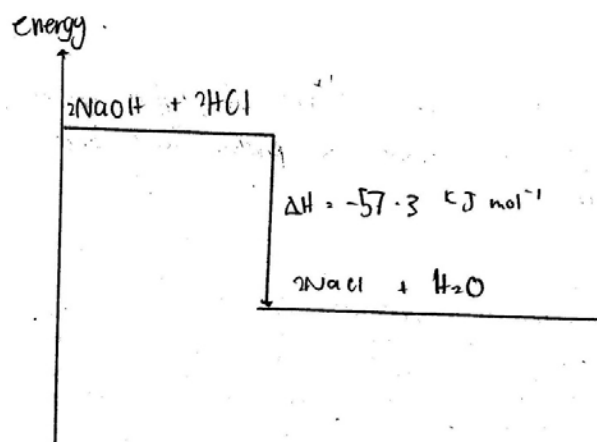 energy.
2NaOH + 2HCl
ΔH = -57.3 kJ mol⁻¹
2NaCl + H₂O